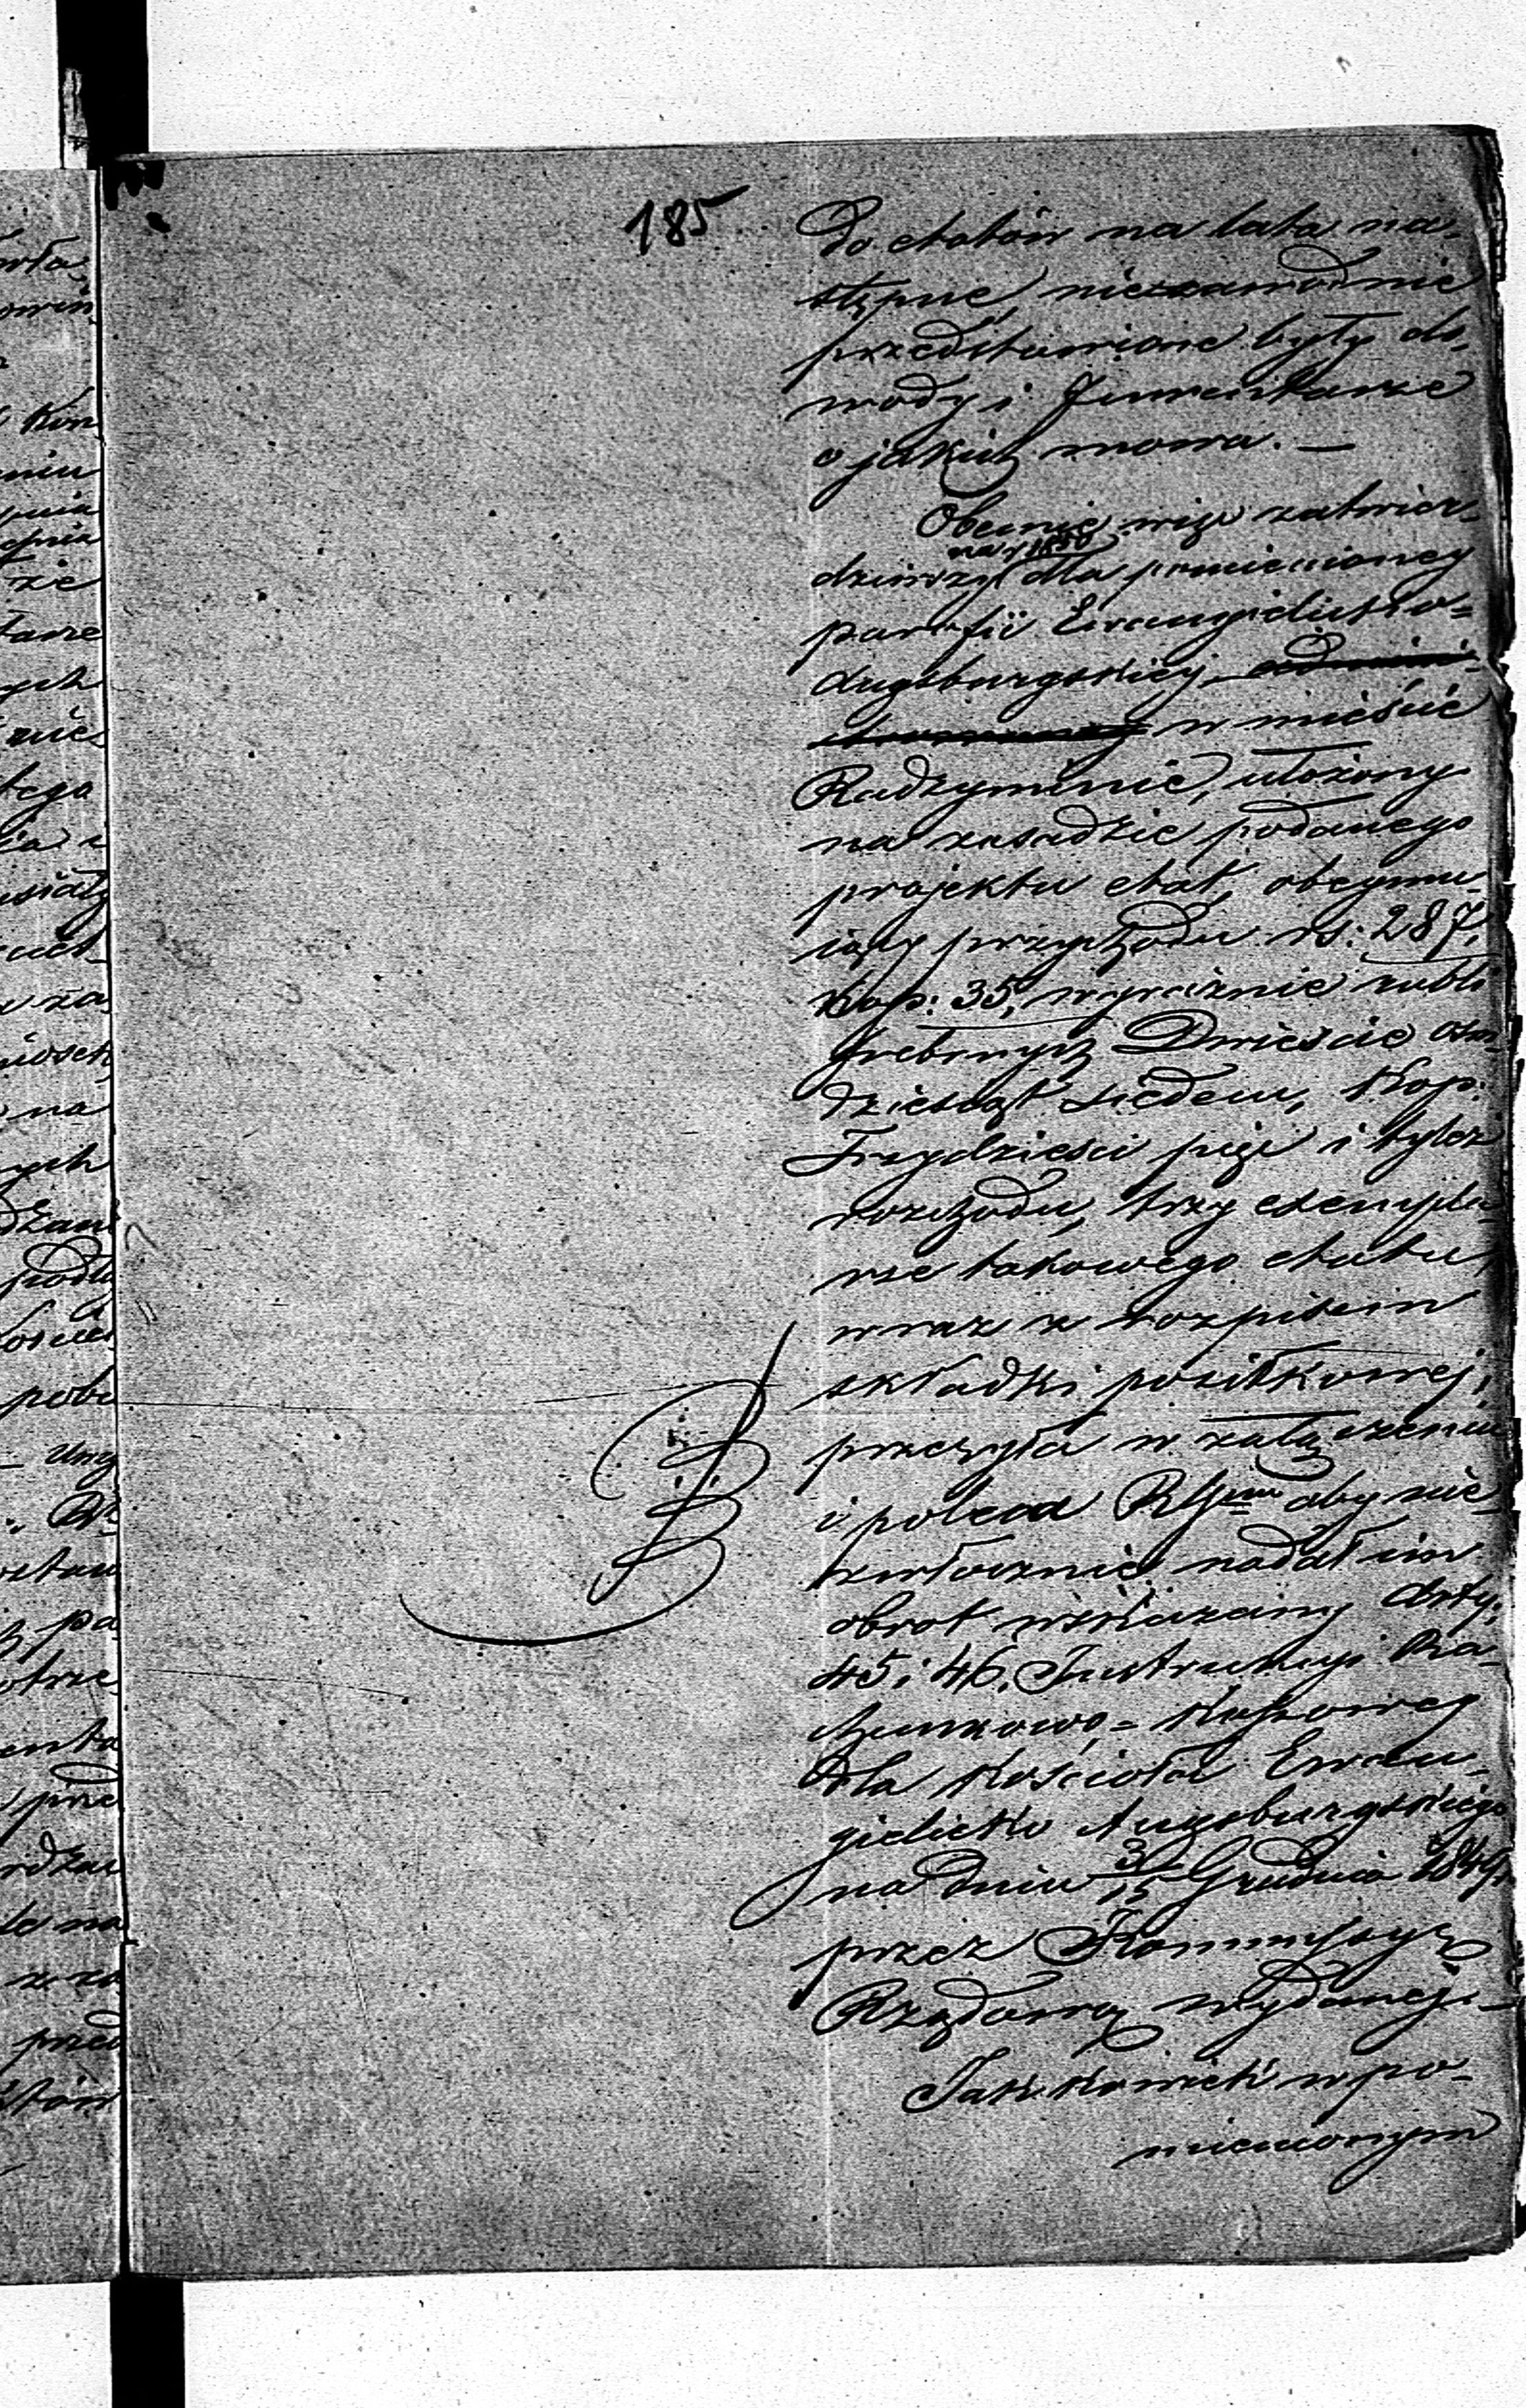 185
Do etatów na lata na-
stępne, niezawodnie
przedstawione były do-
wody i Inwentarze
o jakich mowa. —
Obecnie więc zatwier-
na r. 1850
dziwszy dla pomienioney
parafii Ewangielicko-
Augsburgskiey admini-
strowaney w mieście
Radzyminie, ułożony
na zasadzie podanego
projektu etat, obeymu-
iący przychodu rs: 287,
kop: 35, wyraźnie rubli
srebrnych Dwieście ośm-
dziesiąt siedem, Kop:
Trzydzieści pięć i tyleż
rozchodu, trzy exempla-
rze takowego etatu,
wraz z rozpisem
składki posiłkowej,
przesyła w załączeniu
i poleca aby nie-
zwłocznie nadał im
obrot wskazany Arty:
45 i 46. Instrukcyi Ra-
chunkowo-Kassowey
dla Kościoła Ewan-
gielicko Augsburgskiego
na dniu 3/15 Grudnia 1849
przez Kommissyą
Rządową wydaney. —
Jakkowiek w po-
mienionym